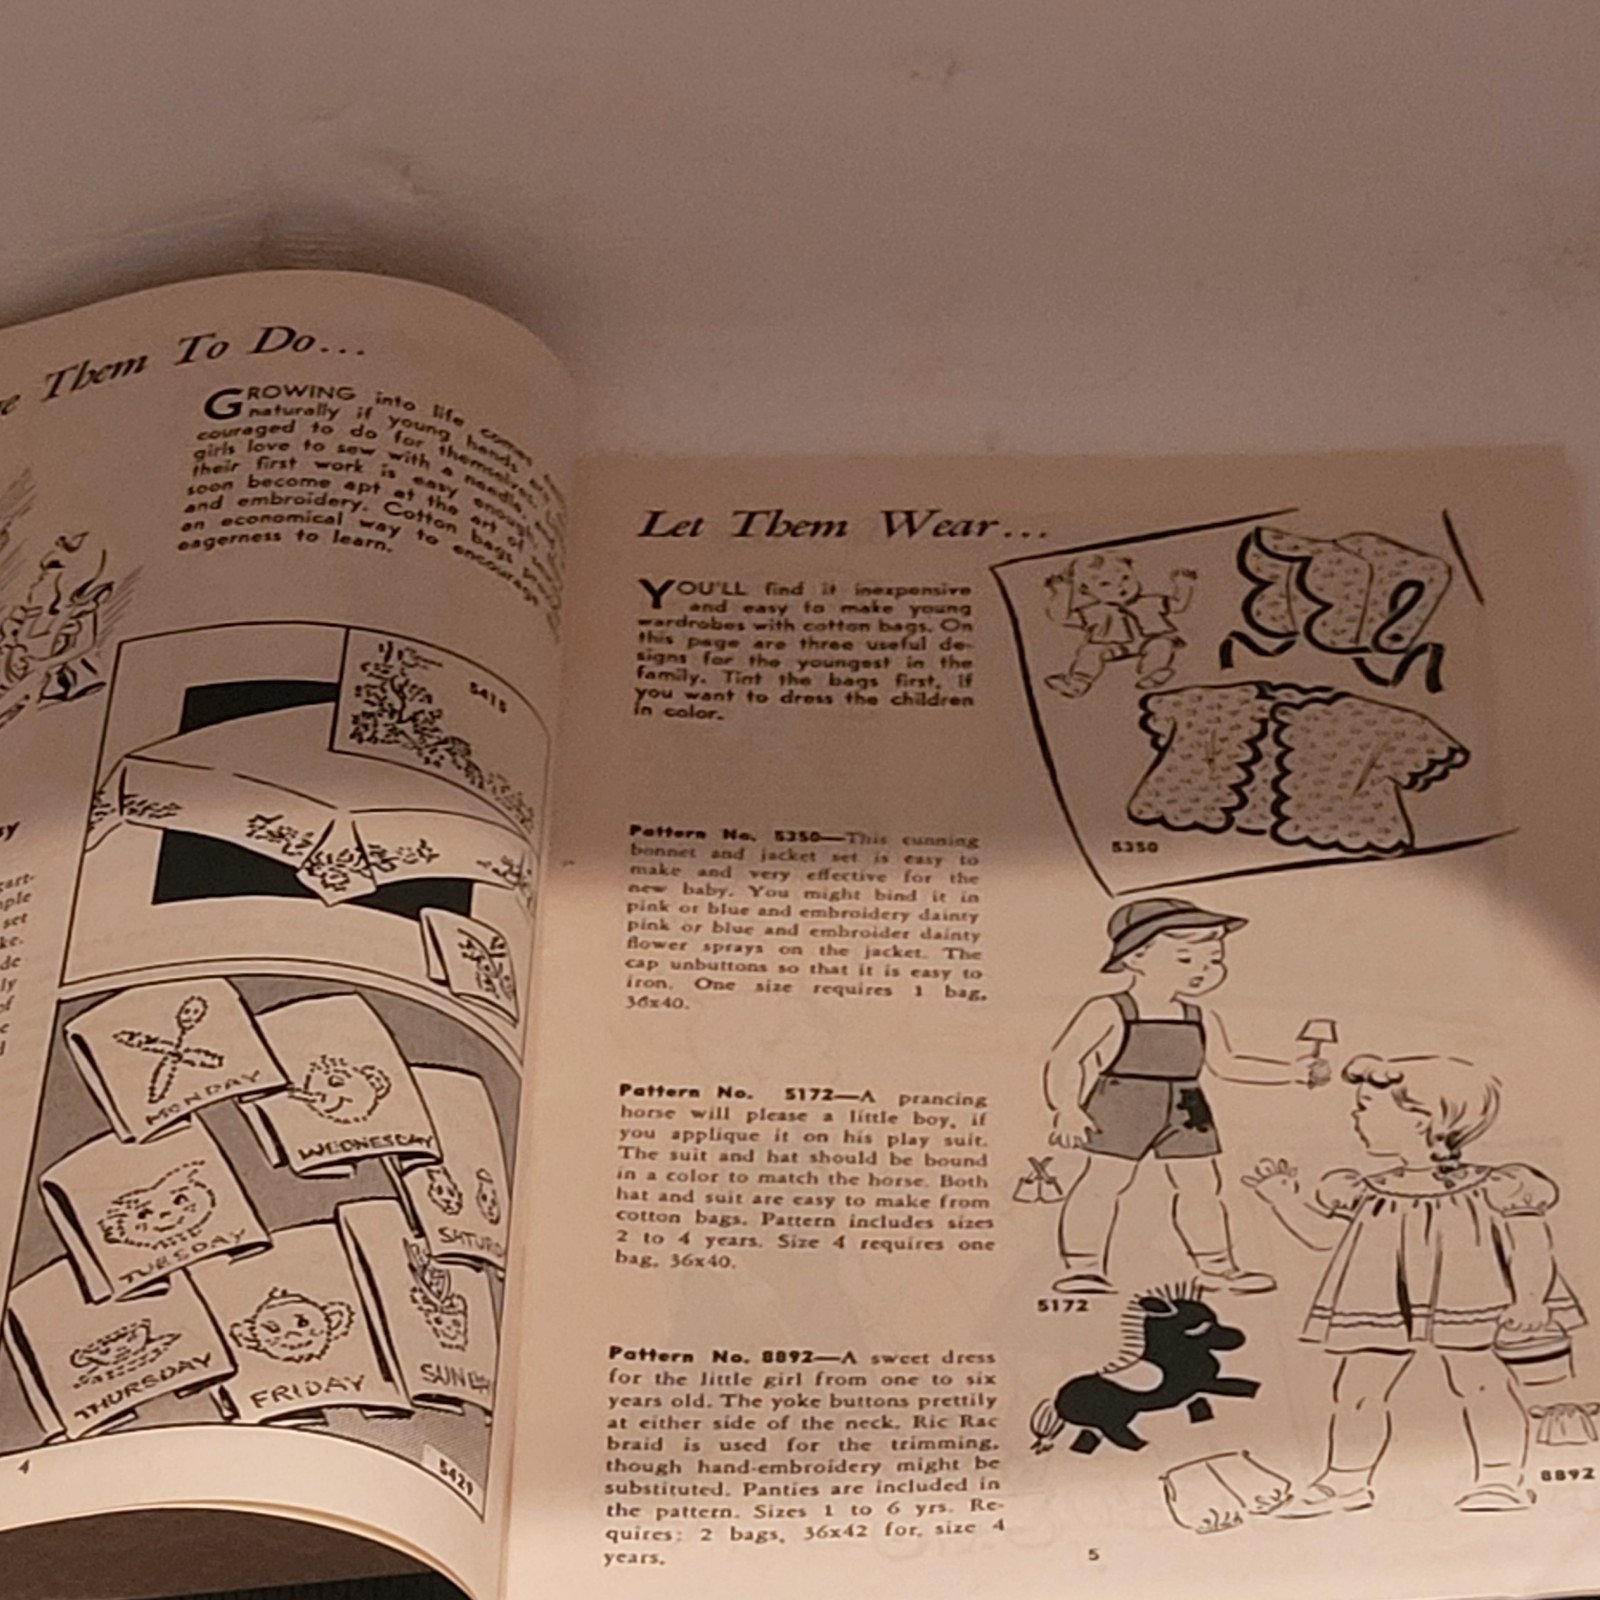 Them To Do...
GROWING into life comes
naturally if young hands are
couraged to do for themselves.
girls love to sew with a needle, and
their first work is easy enough,
soon become apt at the art of
and embroidery. Cotton bags
an economical way to encourage
eagerness to learn.
5415
set
MONDAY
WEDNESDAY
TUESDAY
SATURD
THURSDAY
FRIDAY
SUNDAY
5429
4
Let Them Wear...
YOU'LL find it inexpensive
and easy to make young
wardrobes with cotton bags. On
this page are three useful de-
signs for the youngest in the
family. Tint the bags first, if
you want to dress the children
in color.
Pattern No. 5350—This cunning
bonnet and jacket set is easy to
make and very effective for the
new baby. You might bind it in
pink or blue and embroidery dainty
pink or blue and embroider dainty
flower sprays on the jacket. The
cap unbuttons so that it is easy to
iron. One size requires 1 bag,
36x40.
5350
Pattern No. 5172—A prancing
horse will please a little boy, if
you applique it on his play suit.
The suit and hat should be bound
in a color to match the horse. Both
hat and suit are easy to make from
cotton bags. Pattern includes sizes
2 to 4 years. Size 4 requires one
bag, 36x40.
5172
Pattern No. 8892—A sweet dress
for the little girl from one to six
years old. The yoke buttons prettily
at either side of the neck. Ric Rac
braid is used for the trimming,
though hand-embroidery might be
substituted. Panties are included in
the pattern. Sizes 1 to 6 yrs. Re-
quires: 2 bags, 36x42 for, size 4
years.
8892
5